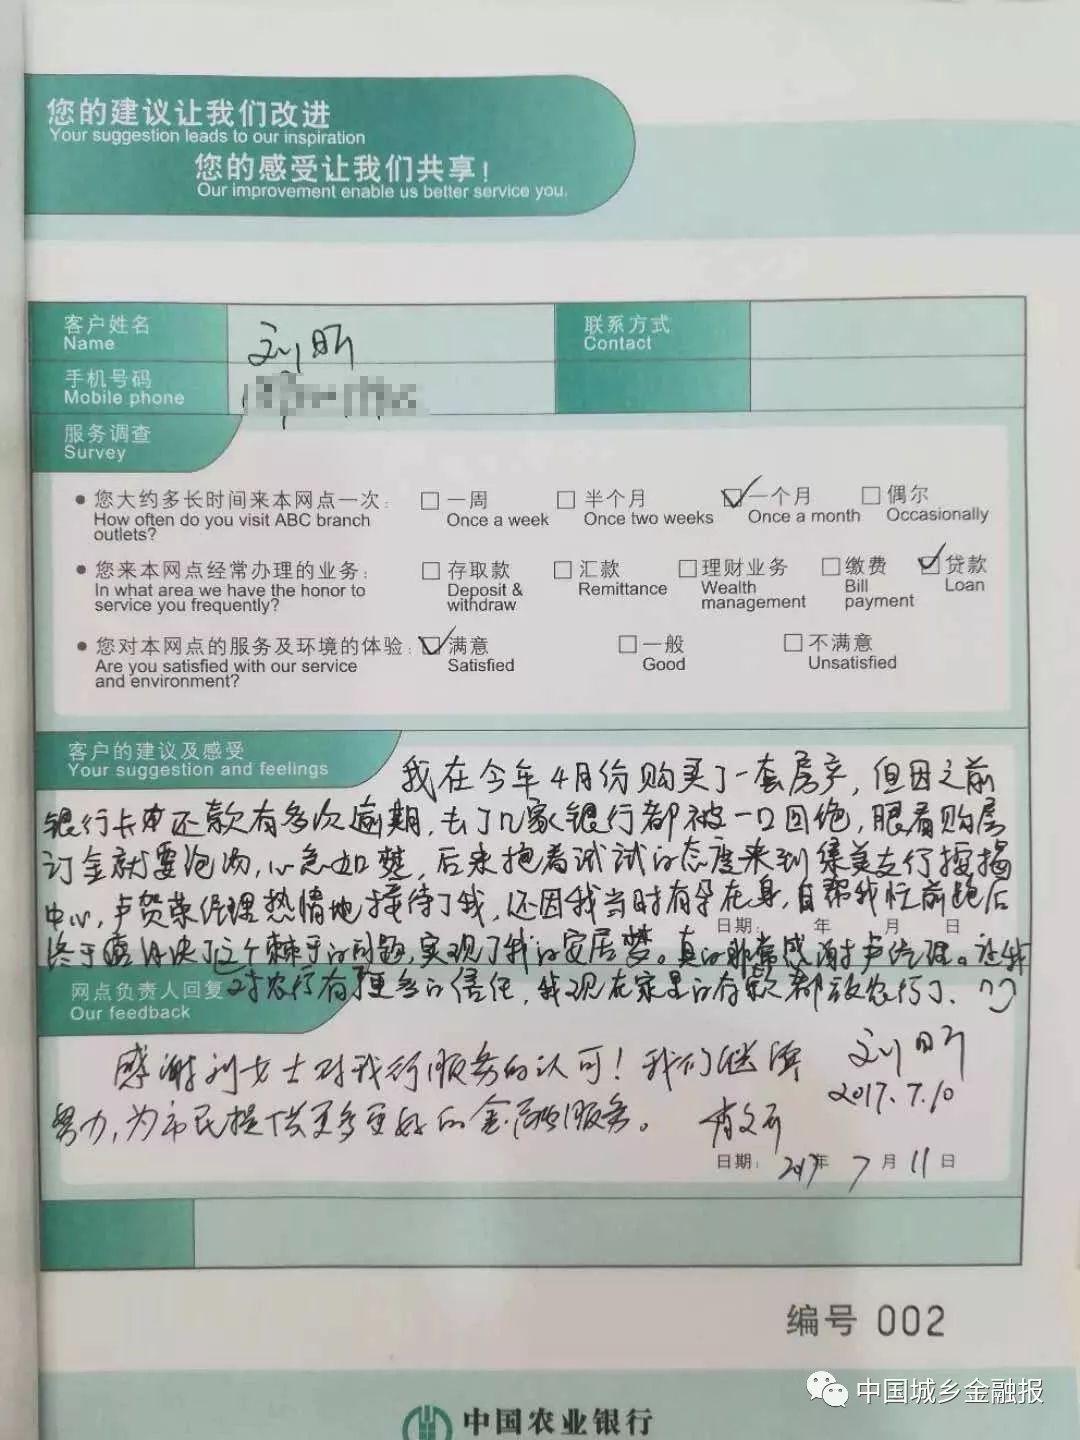 您的建议让我们改进
Your suggestion leads to our inspiration
您的感受让我们共享!
Our improvement enable us better service you.
客户姓名
Name
刘昕
联系方式
Contact
手机号码
Mobile phone
服务调查
Survey
您大约多长时间来本网点一次: 一周 半个月 一个月 偶尔
How often do you visit ABC branch outlets? Once a week Once two weeks Once a month Occasionally
您来本网点经常办理的业务: 存取款 汇款 理财业务 缴费 贷款
In what area we have the honor to service you frequently? Deposit & withdraw Remittance Wealth management Bill payment Loan
您对本网点的服务及环境的体验: 满意 一般 不满意
Are you satisfied with our service and environment? Satisfied Good Unsatisfied
客户的建议及感受
Your suggestion and feelings
我在今年4月份购买了一套房产,但因之前
银行卡还款有多次逾期,去了几家银行都被一口回绝,眼看购房
订金就要泡汤,心急如焚,后来抱着试试的态度来到集美支行按揭
中心,卢贺荣经理热情地接待了我,还因我当时有孕在身,自帮我忙前跑后
日期: 年 月 日
终于解决了这个棘手的问题,实现了我的安居梦。真的非常感谢卢经理。让我
对农行有了更多的信任,我现在家里的存款都放农行了、
网点负责人回复
Our feedback
刘昕
2017.7.10
感谢刘女士对我行服务的认可!我们继续
努力,为市民提供更多更好的金融服务。
日期: 2017年 7月 11日
编号 002
中国农业银行
中国城乡金融报